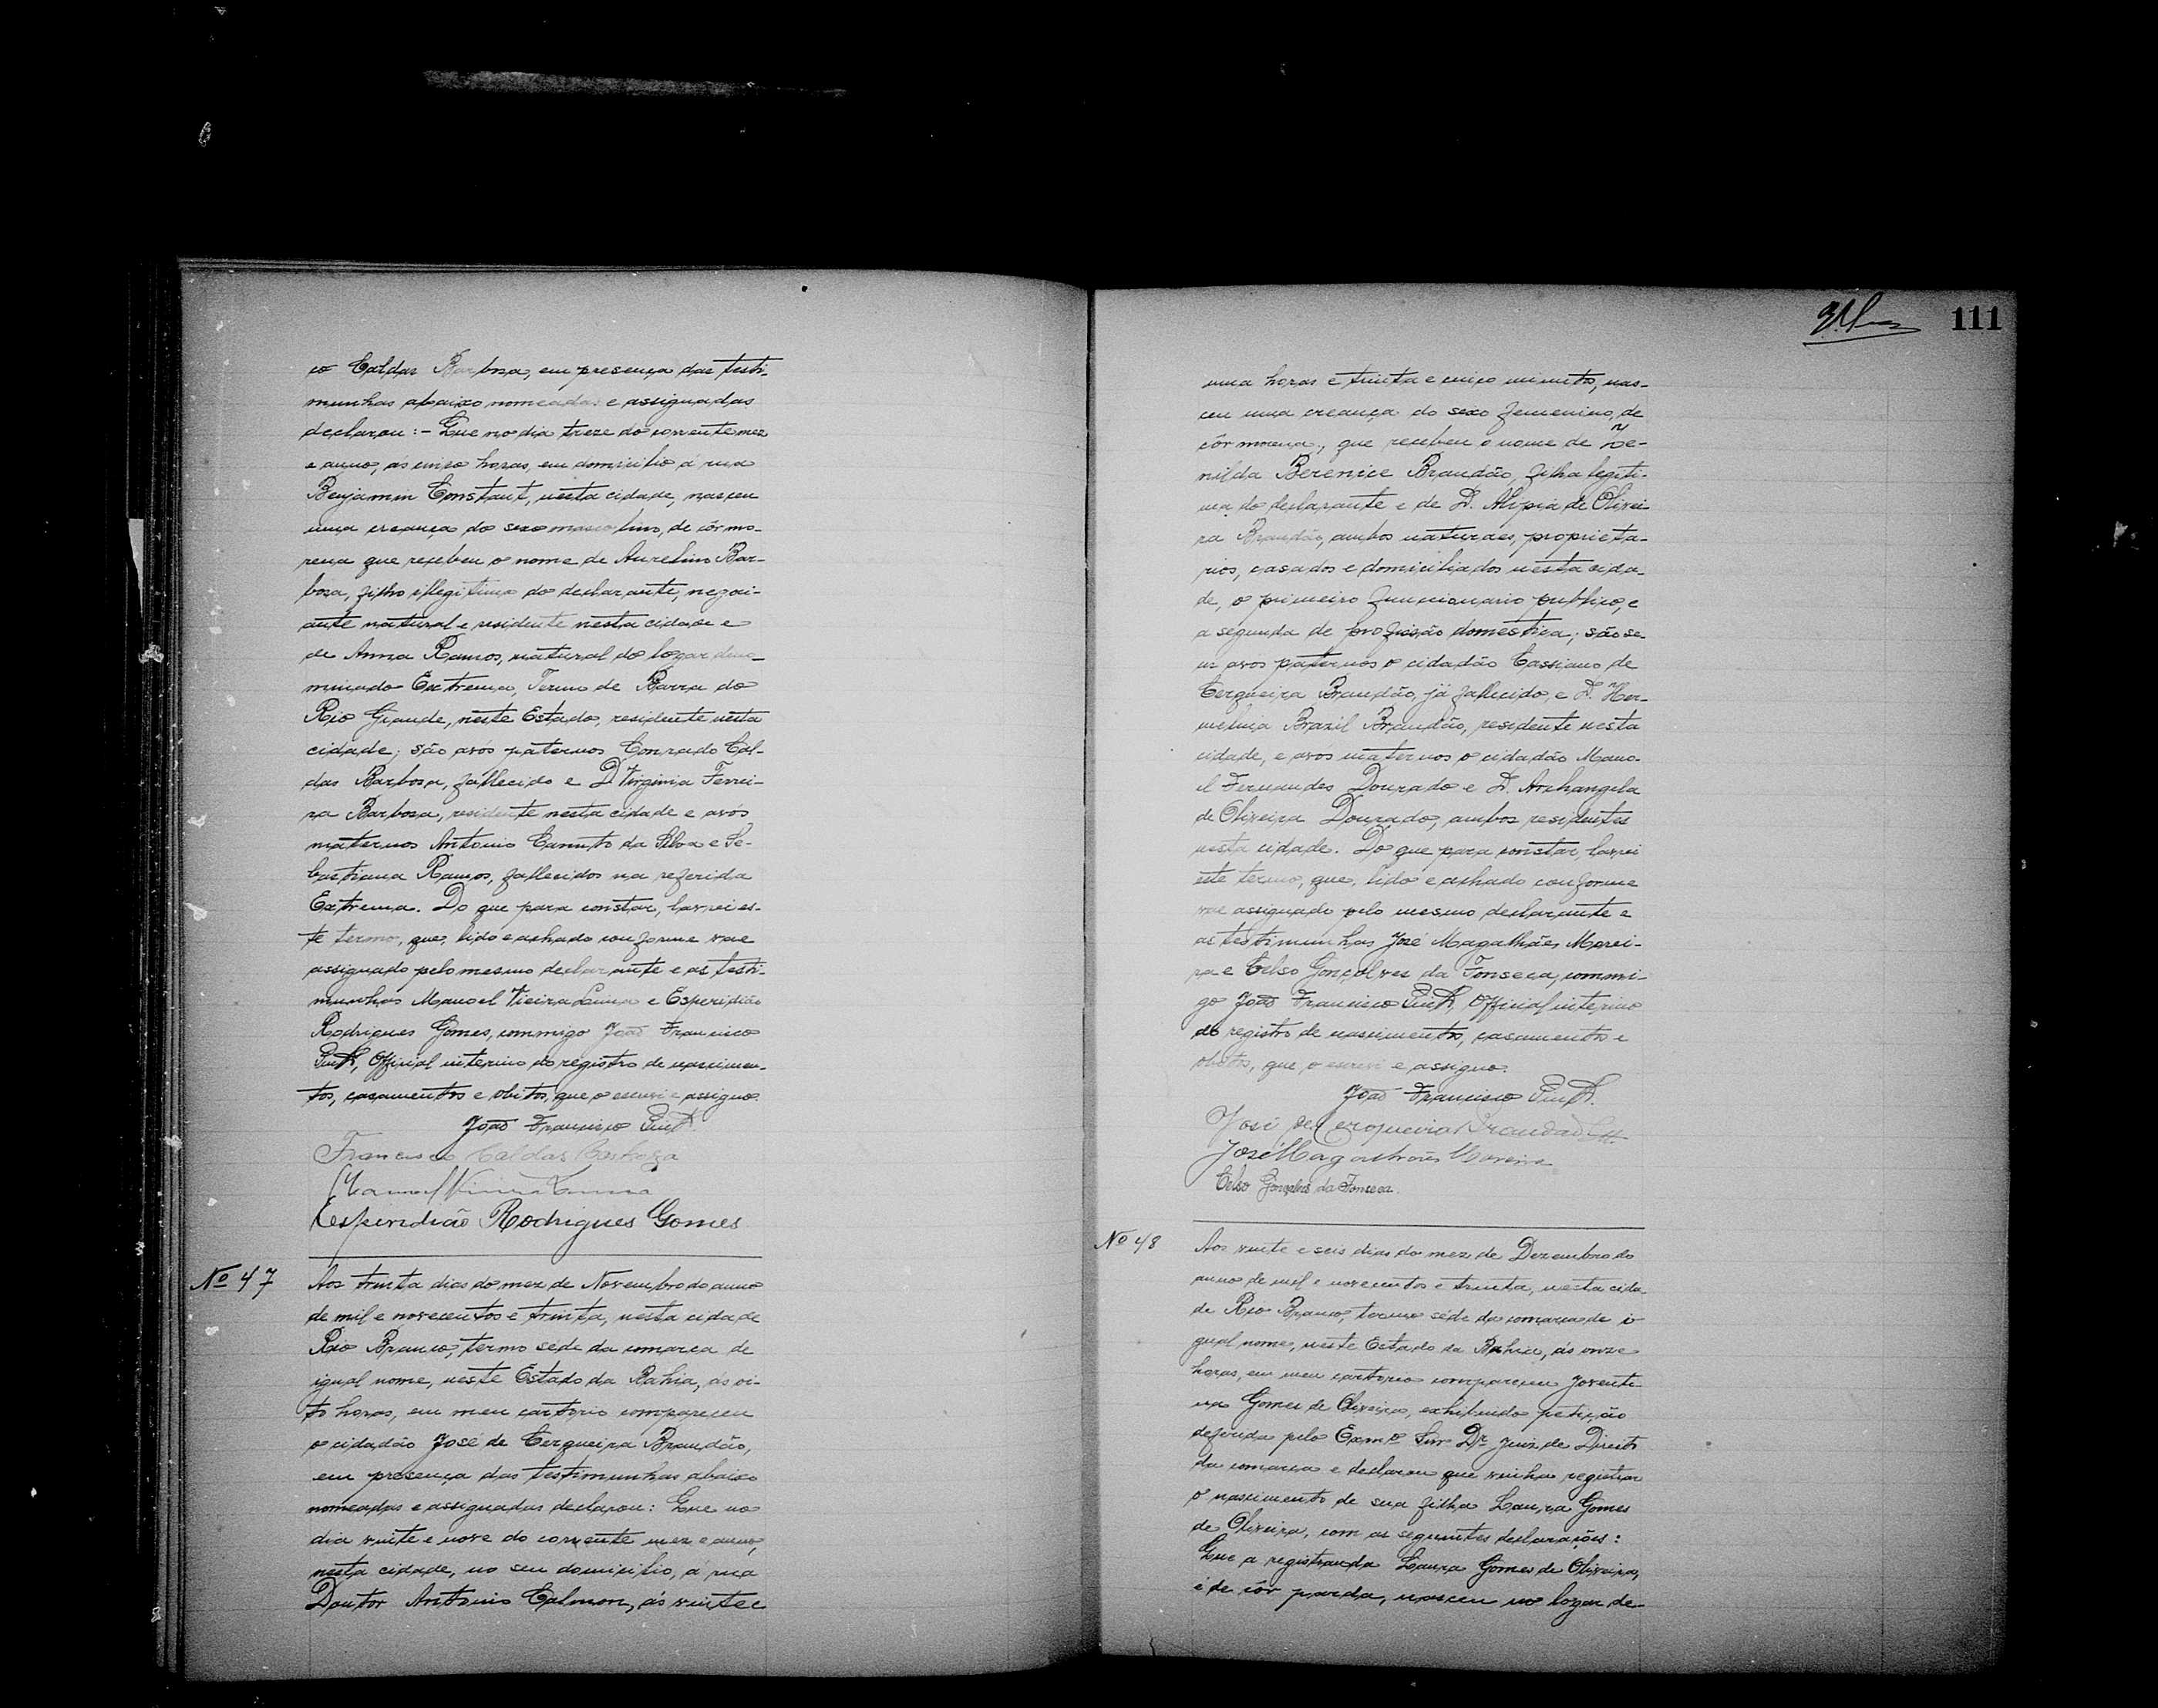 co Caldas Barbosa, em presença das testi-
munhas abaixo nomeadas e assignadas
declarou:- Que no dia treze do corrente mez
e anno, ás cinco horas, em domicilio á rua
Benjamin Constant, nesta cidade, nasceu
uma creança do sexo masculino, de côr mo-
rena que recebeu o nome de Aurelino Bar-
bosa, filho illegitimo do declarante, negoci-
ante natural e residente nesta cidade e
de Anna Ramos, natural do logar deno-
minado Extrema, Termo de Barra do
Rio Grande, neste Estado, residente nesta
cidade; são avós paternos Conrado Cal-
das Barbosa, fallecido e D. Virginia Ferrei-
ra Barbosa, residente nesta cidade e avós
maternos Antonio Canuto da Silva e Se-
bastiana Ramos, fallecidos na referida
Extrema. Do que para constar, lavrei es-
te termo, que, lido e achado conforme vae
assignado pelo mesmo declarante e as testi-
munhas Manoel Vieira e Esperidião
Rodrigues Gomes, commigo João Francisco
Official interino do registro de nascimen-
tos, casamentos e obitos, que o escrevi e assigno.
João Francisco
Francisco Caldas Barboza
Manoel Vieira
Esperidião Rodrigues Gomes
Nº 47
Aos trinta dias do mez de Novembro do anno
de mil e novecentos e trinta, nesta cidade
Rio Branco, termo séde da comarca de
igual nome, neste Estado da Bahia, ás oi-
to horas, em meu cartorio compareceu
o cidadão José de Cerqueira Brandão,
em presença das testimunhas abaixo
nomeadas e assignadas declarou: Que no
dia vinte e nove do corrente mez e anno,
nesta cidade, no seu domicilio, á rua
Doutor Antonio Calmon, ás vinte e
111
uma horas e trinta e cinco minutos, nas-
ceu uma creança do sexo femenino, de
côr morena, que recebeu o nome de Ze-
nilda Berenice Brandão, filha legiti-
ma do declarante e de D. Alipia de Olivei
ra Brandão, ambos naturaes, proprieta-
rios, casados e domiciliados nesta cida-
de, o primeiro funccionario publico, e
a segunda de profissão domestica; são se-
us avos paternos o cidadão Cassiano de
Cerqueira Brandão, já fallecido, e D. Her-
melina Brazil Brandão, residente nesta
cidade, e avós maternos o cidadão Mano-
el Fernandes Dourado e D. Archangela
de Oliveira Dourado, ambos residentes
nesta cidade. Do que para constar, lavrei
este termo, que, lido e achado conforme
vae assignado pelo mesmo declarante e
as testimunhas José Magalhães Morei-
ra e Celso Gonçalves da Fonseca, commi-
go João Francisco Official interino
do registro de nascimentos, casamentos e
obitos, que o escrevi e assigno.
João Francisco
José de Cerqueira Brandão
José Magalhães Moreira
Celso Gonçalves da Fonseca.
Nº 48
Aos vinte e seis dias do mez de Dezembro do
anno de mil e novecentos e trinta, nesta cida
de Rio Branco, termo séde da comarca de i-
gual nome, neste Estado da Bahia, ás onze
horas, em meu cartorio compareceu Joventi-
na Gomes de Oliveira, exhibindo petição
deferida pelo Exmº Snr Dr Juiz de Direito
da comarca e declarou que vinha registrar
o nascimento de sua filha Laura Gomes
de Oliveira, com as seguintes declarações:
Que a registranda Laura Gomes de Oliveira,
é de côr parda, nasceu no logar de-